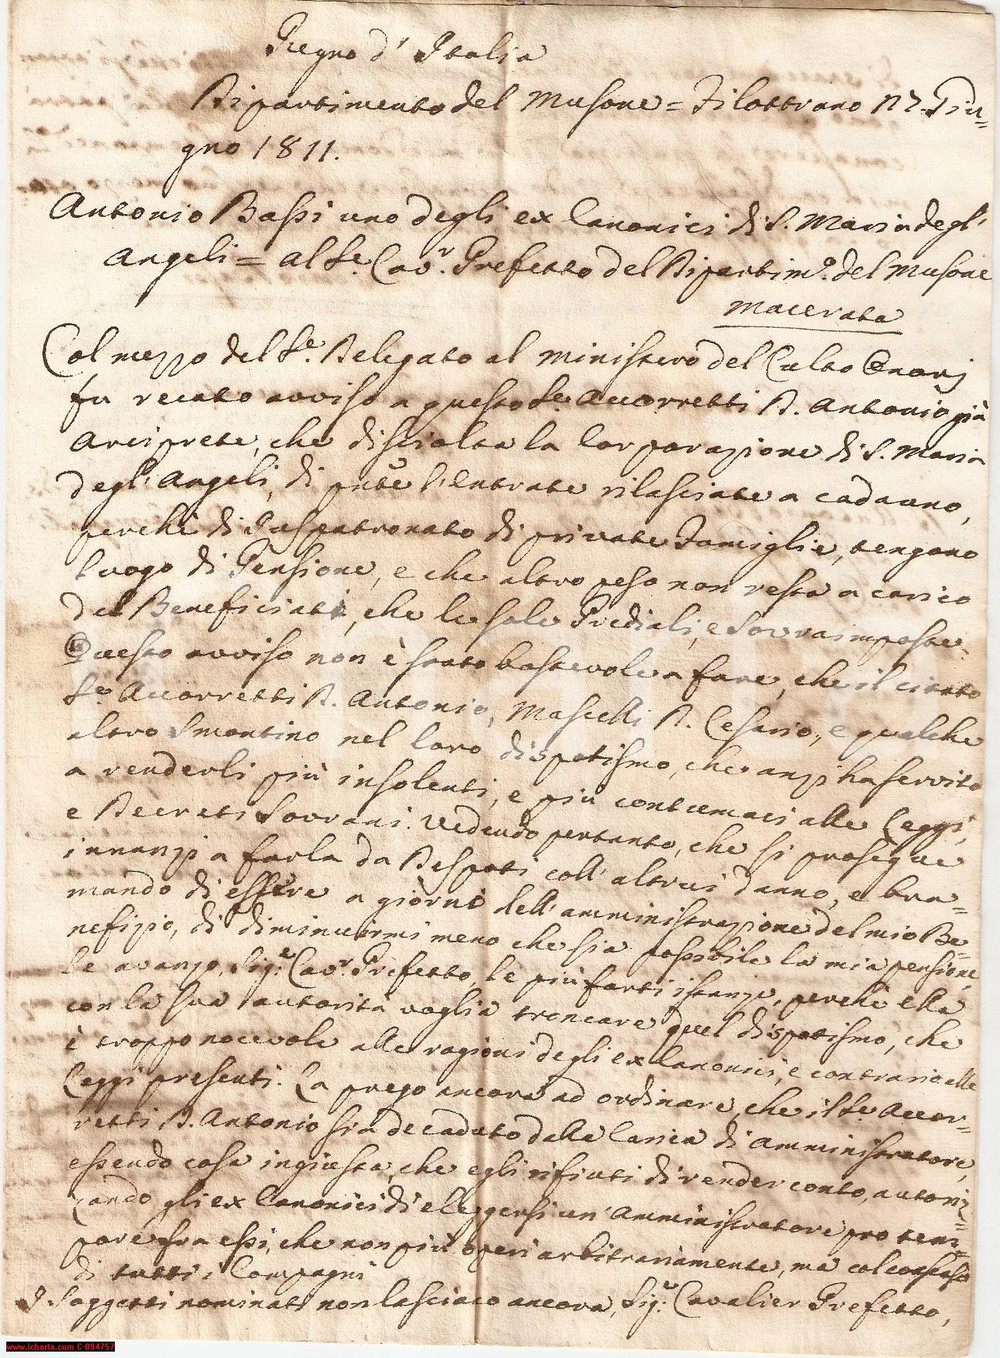 Regno d' Italia
Dipartimento del Musone = Filottrano 17. Giu=
gno 1811.
Antonio Bassi uno degli ex Canonici di S. Maria degl'
Angeli = al Sr. Cavr. Prefetto del Dipartimo. del Musone
Macerata
Col mezzo del Sr. Delegato al Ministero del Culto
fu recato avviso a questo Sr. Accorretti D. Antonio già
Arciprete, che disciolta la Corporazione di S. Maria
degl' Angeli, di pnte l'Entrate rilasciate a cadauno,
perchè di Juspatronato di private Famiglie, tengano
luogo di Pensione, e che altro peso non resta a carico
dei Beneficiati, che le sole Prediali, e Sovraimposte.
Questo avviso non è stato bastevole a fare, che il citato
Sr. Accorretti D. Antonio, Mascelli D. Cesario, e qualche
altro Smontino nel loro dispotismo, che anzi ha servito
a renderli più insolenti, e più contumaci alle Leggi,
e Decreti Sovrani. Vedendo pertanto, che si prosegue
innanzi a farla da Despoti coll' altrui danno, e bra=
mando di essere a giorni dell' amministrazione del mio Be=
nefizio, di diminuirmi meno che sia possibile la mia pensione,
Le avanzo, Sigr. Cavr. Prefetto, le più forti istanze, perchè ella
con la sua autorità voglia troncare quel dispotismo, che
è troppo nocevole alle ragioni degli ex Canonici, e contrario alle
Leggi presenti. La prego ancora ad ordinare, che il Sr. Accor=
retti D. Antonio sia decaduto dalla Carica di Amministratore,
essendo cosa ingiusta, che egli rifiuti di render conto, autoriz=
zando gli ex Canonici di eleggersi un' Amministratore pro tem=
pore fra essi, che non più operi arbitrariamente, ma col consenso
di tutti i Compagni
I Soggetti nominati non lasciano ancora, Sigr. Cavalier Prefetto,
www.icharta.com C-094757